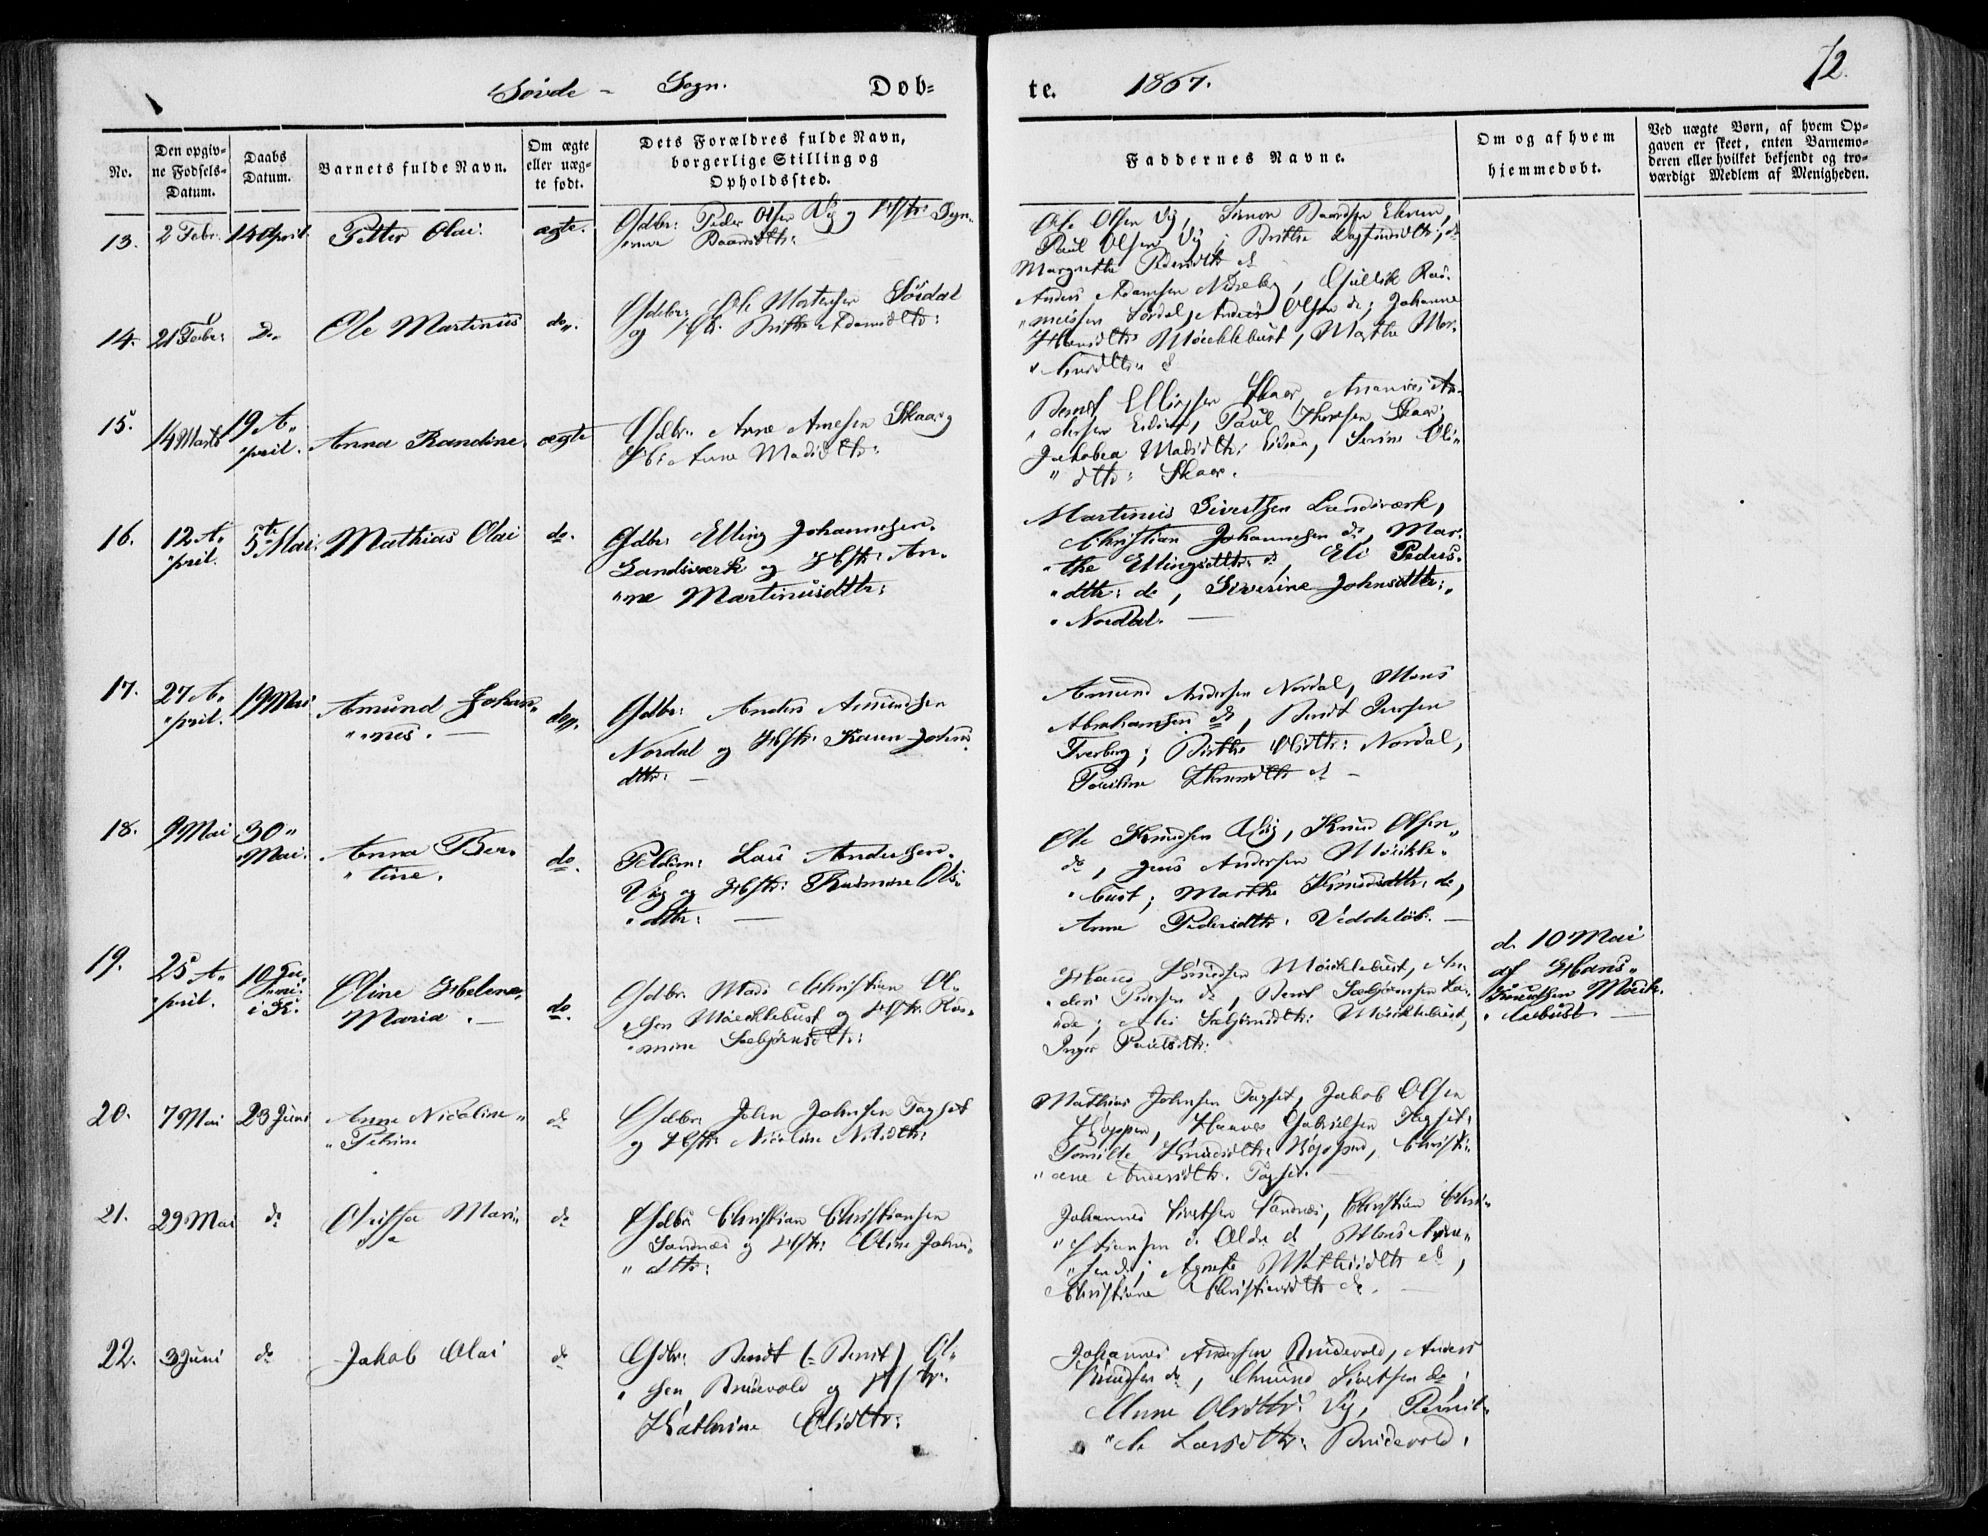 Søvde - Sogn. Døb=
te. 1867. 72.
No.
Den opgiv=
ne Fødsels=
Datum.
Daabs
Datum.
Barnets fulde Navn.
Om ægte
eller uæg=
te født.
Dets Forældres fulde Navn,
borgerlige Stilling og
Opholdssted.
Faddernes Navne.
Om og af hvem
hjemmedøbt.
Ved uægte Børn, af hvem Op=
gaven er skeet, enten Barnemo=
deren eller hvilket bekjendt og tro=
værdigt Medlem af Menigheden.
13. 2 Febr. 14 April. Petter Olai. ægte.
Gdbr: Peder Olsen Vig og Hstr:
Ole Olsen Vig, Simon Baardsen
Paul Olsen Vig; Birthe
Margrethe Pedersdtr: do
14. 21 Febr: Do Ole Martinus do.
Gdbr: Ole Mortensen Sørdal
og Hstr. Brithe Adamsdtr:
Anders Adamsen
Sørdal, Anders Olsen do; Johanne
Hansdtr: Møicklebust, Marthe Mor,
15. 14 Marts 19 A,,
,,pril. Anna Randine ægte
Gdbr: Arne Arnesen Skaar og
H: Anne Madsdtr:
Bernt Ellingsen Skaar,
Paul Skaar,
Jakobea Madsdtr: Eidsaa, Serine Ols,,
,, dtr: Skaar.
16. 12 A,,
,,pril. 5te Mai. Mathias Olai do.
Gdbr: Elling Johannesen
Landsværk og Hstr: An,
,,ne Martinusdtr:
Martinus Sivertsen Landsværk,
Christian Johannesen do, Mar,
,,the Ellingsdtr: do, Eli Peders,
,,dtr: do, Siverine Johnsdtr:
,,Nordal.
17. 27 A,,
,,pril. 19 Mai Amund Johan,,
,,nes. do.
Gdbr: Anders Amundsen
Nordal og Hstr: Karen Johns,
dtr:
Amund Andersen Nordal, Mons
Abrahamsen do, Bendt Iversen
Tverberg; Birthe Olsdtr: Nordal,
Pauline do
18. 9 Mai 30,,
,,Mai. Anna Ber,
,,tine. do.
Lars Andersen
Vig og Hstr: Rasmine Ols,
,,dtr:
Ole Knudsen Vig, Knud Olsen
do, Jens Andersen Møickle,,
,,bust; Marthe Knudsdtr: do,
Anne Pedersdtr: Veddeløb.
19. 25 A,,
,,pril. 10 Ju,
,,ni.
i K. Oline Helene
Maria. do.
Gdbr: Mads Christian Ol,
,,sen Møicklebust og Hstr: Ras,
,,mine Sæbjørnsdtr:
Hans Knudsen Møicklebust, An,
,,ders Pedersen do, Bernt Sæbjørnsen
Sæbjørnsdtr: Møicklebust,
Inger Paulsdtr:
d. 10 Mai
af Hans
Knudsen Møick,
,,lebust.
20. 7 Mai 23 Juni Anne Nicoline
,,Petrine do
Gdbr: John Johnsen Tagset
og Hstr: Nicoline Nilsdtr:
Mathias Johnsen Tagset, Jakob Olsen
Gabrielsen Tagset;
Knudsdtr: Christi,
,,ane Andersdtr: Tagset.
21. 29 Mai do Mari,, do
Gdbr: Christian Christiansen
Sandnæs og Hstr: Oline Johns,
,,dtr:
Johannes Sivertsen Sandnæs, Christian Chri,
,,stiansen do
,,sen do; Agnete do,
Christiane Christiansdtr: do.
22. 3 Juni do Jakob Olai do
Gdbr: Bendt (= Bernt) Ol,
,,sen Brudevold og Hstr:
Kathrine Olsdtr:
Johannes Andersen Brudevold, Anders
Knudsen do, Amund Sivertsen do;
Anne Olsdtr: Vig, Pernil,
,,le Larsdtr: Brudevold.